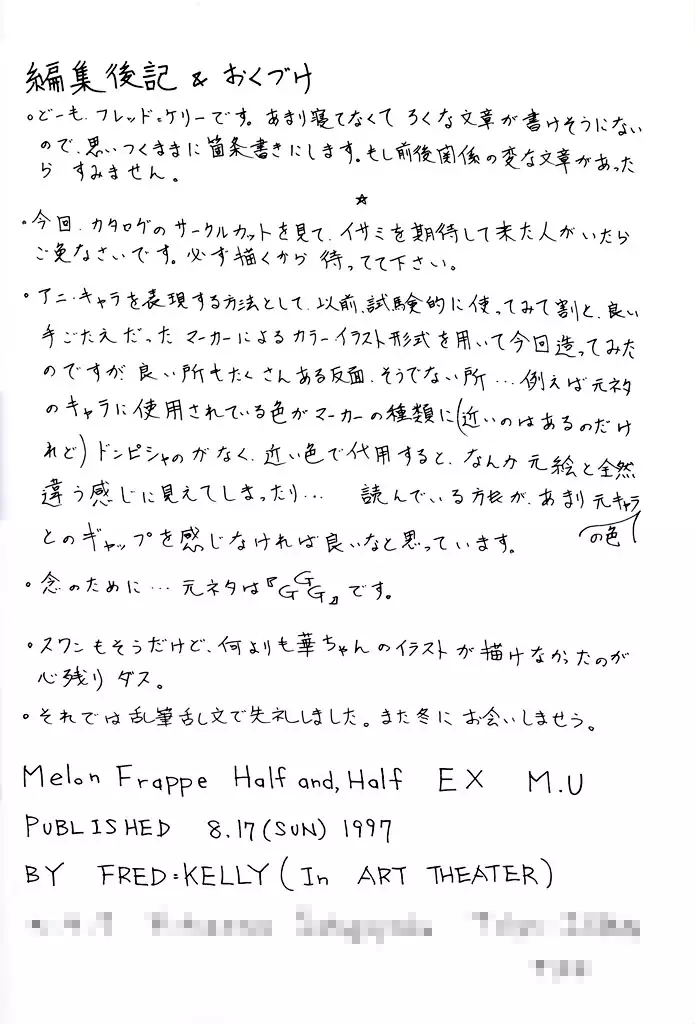 編集後記 & おくづけ
。どーも、フレッド=ケリーです。あまり寝てなくて ろくな文章が書けそうにない
ので、思いつくままに箇条書きにします。もし前後関係の変な文章があった
ら すみません。
☆
・今回、カタログのサークルカットを見て、イサミを期待して来た人がいたら
ご免なさいです。必ず描くから 待ってて下さい。
・アニ・キャラを表現する方法として、以前、試験的に使ってみて割と、良い
手ごたえだった マーカーによるカラーイラスト形式を用いて今回造ってみた
のですが、良い所もたくさんある反面、そうでない所…例えば元ネタ
のキャラに使用されている色がマーカーの種類に(近いのはあるのだけ
れど)ドンピシャのがなく、近い色で代用すると、なんか元絵と全然
違う感じに見えてしまったり… 読んでいる方が、あまり元キャラ
の色
とのギャップを感じなければ良いなと思っています。
・念のために…元ネタは『GGG』です。
・スワンもそうだけど、何よりも華ちゃんのイラストが描けなかったのが
心残りダス。
・それでは乱筆乱文で失礼しました。また冬にお会いしませう。
Melon Frappe Half and, Half EX M.U
PUBLISHED 8.17(SUN) 1997
BY FRED=KELLY (In ART THEATER)